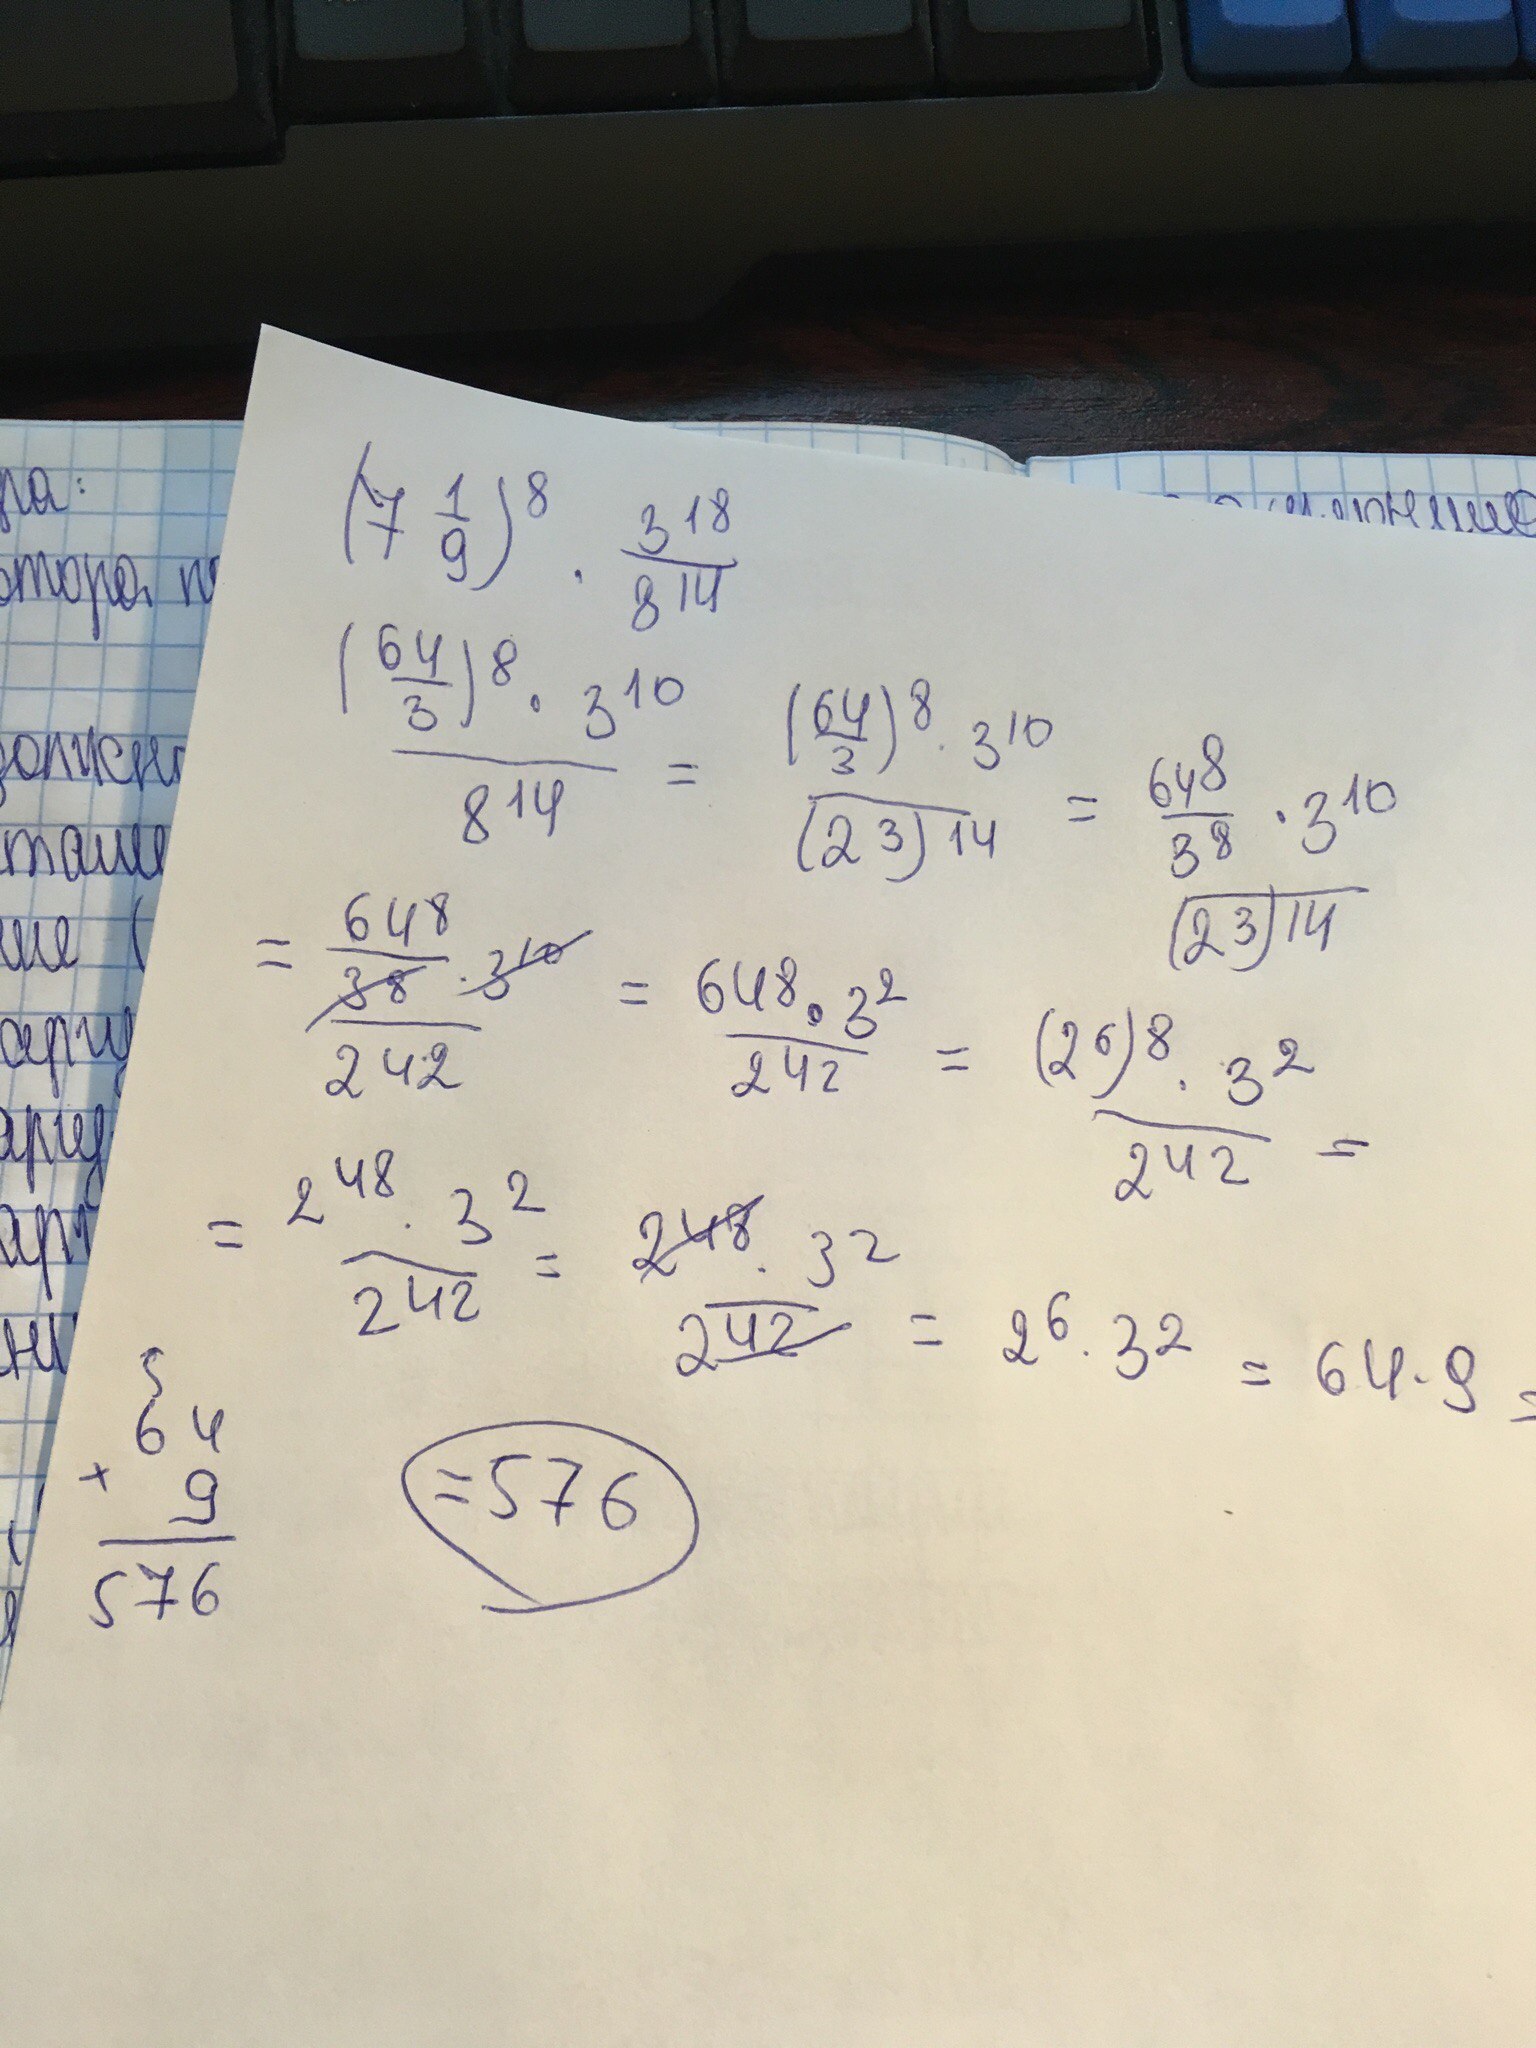 (7 1/9)^8 · 3^18/8^14
((64/3)^8 · 3^10)/8^14 = ((64/3)^8 · 3^10)/(2^3)^14 = (64^8/3^8 · 3^10)/(2^3)^14
= (64^8/3^8 · 3^10)/2^42 = (64^8 · 3^2)/2^42 = ((2^6)^8 · 3^2)/2^42 =
= (2^48 · 3^2)/2^42 = (2^48 · 3^2)/2^42 = 2^6 · 3^2 = 64 · 9 =
= 576
5
64
× 9
576
ра: